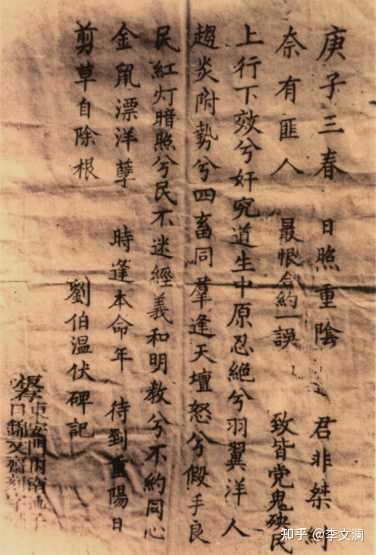 庚子三春 日照重陰 君非桀紂
奈有匪人 最恨合約一誤 致皆党鬼殃民
上行下效兮奸究道生中原忍絶兮羽翼洋人
趨炎附勢兮四畜同羣逢天壇怒兮假手良
民紅灯暗照兮民不迷經義和明教兮不約同心
金鼠漂洋孽 時逢本命年 待到重陽日
剪草自除根 劉伯温伏碑記
知乎 @李文澜